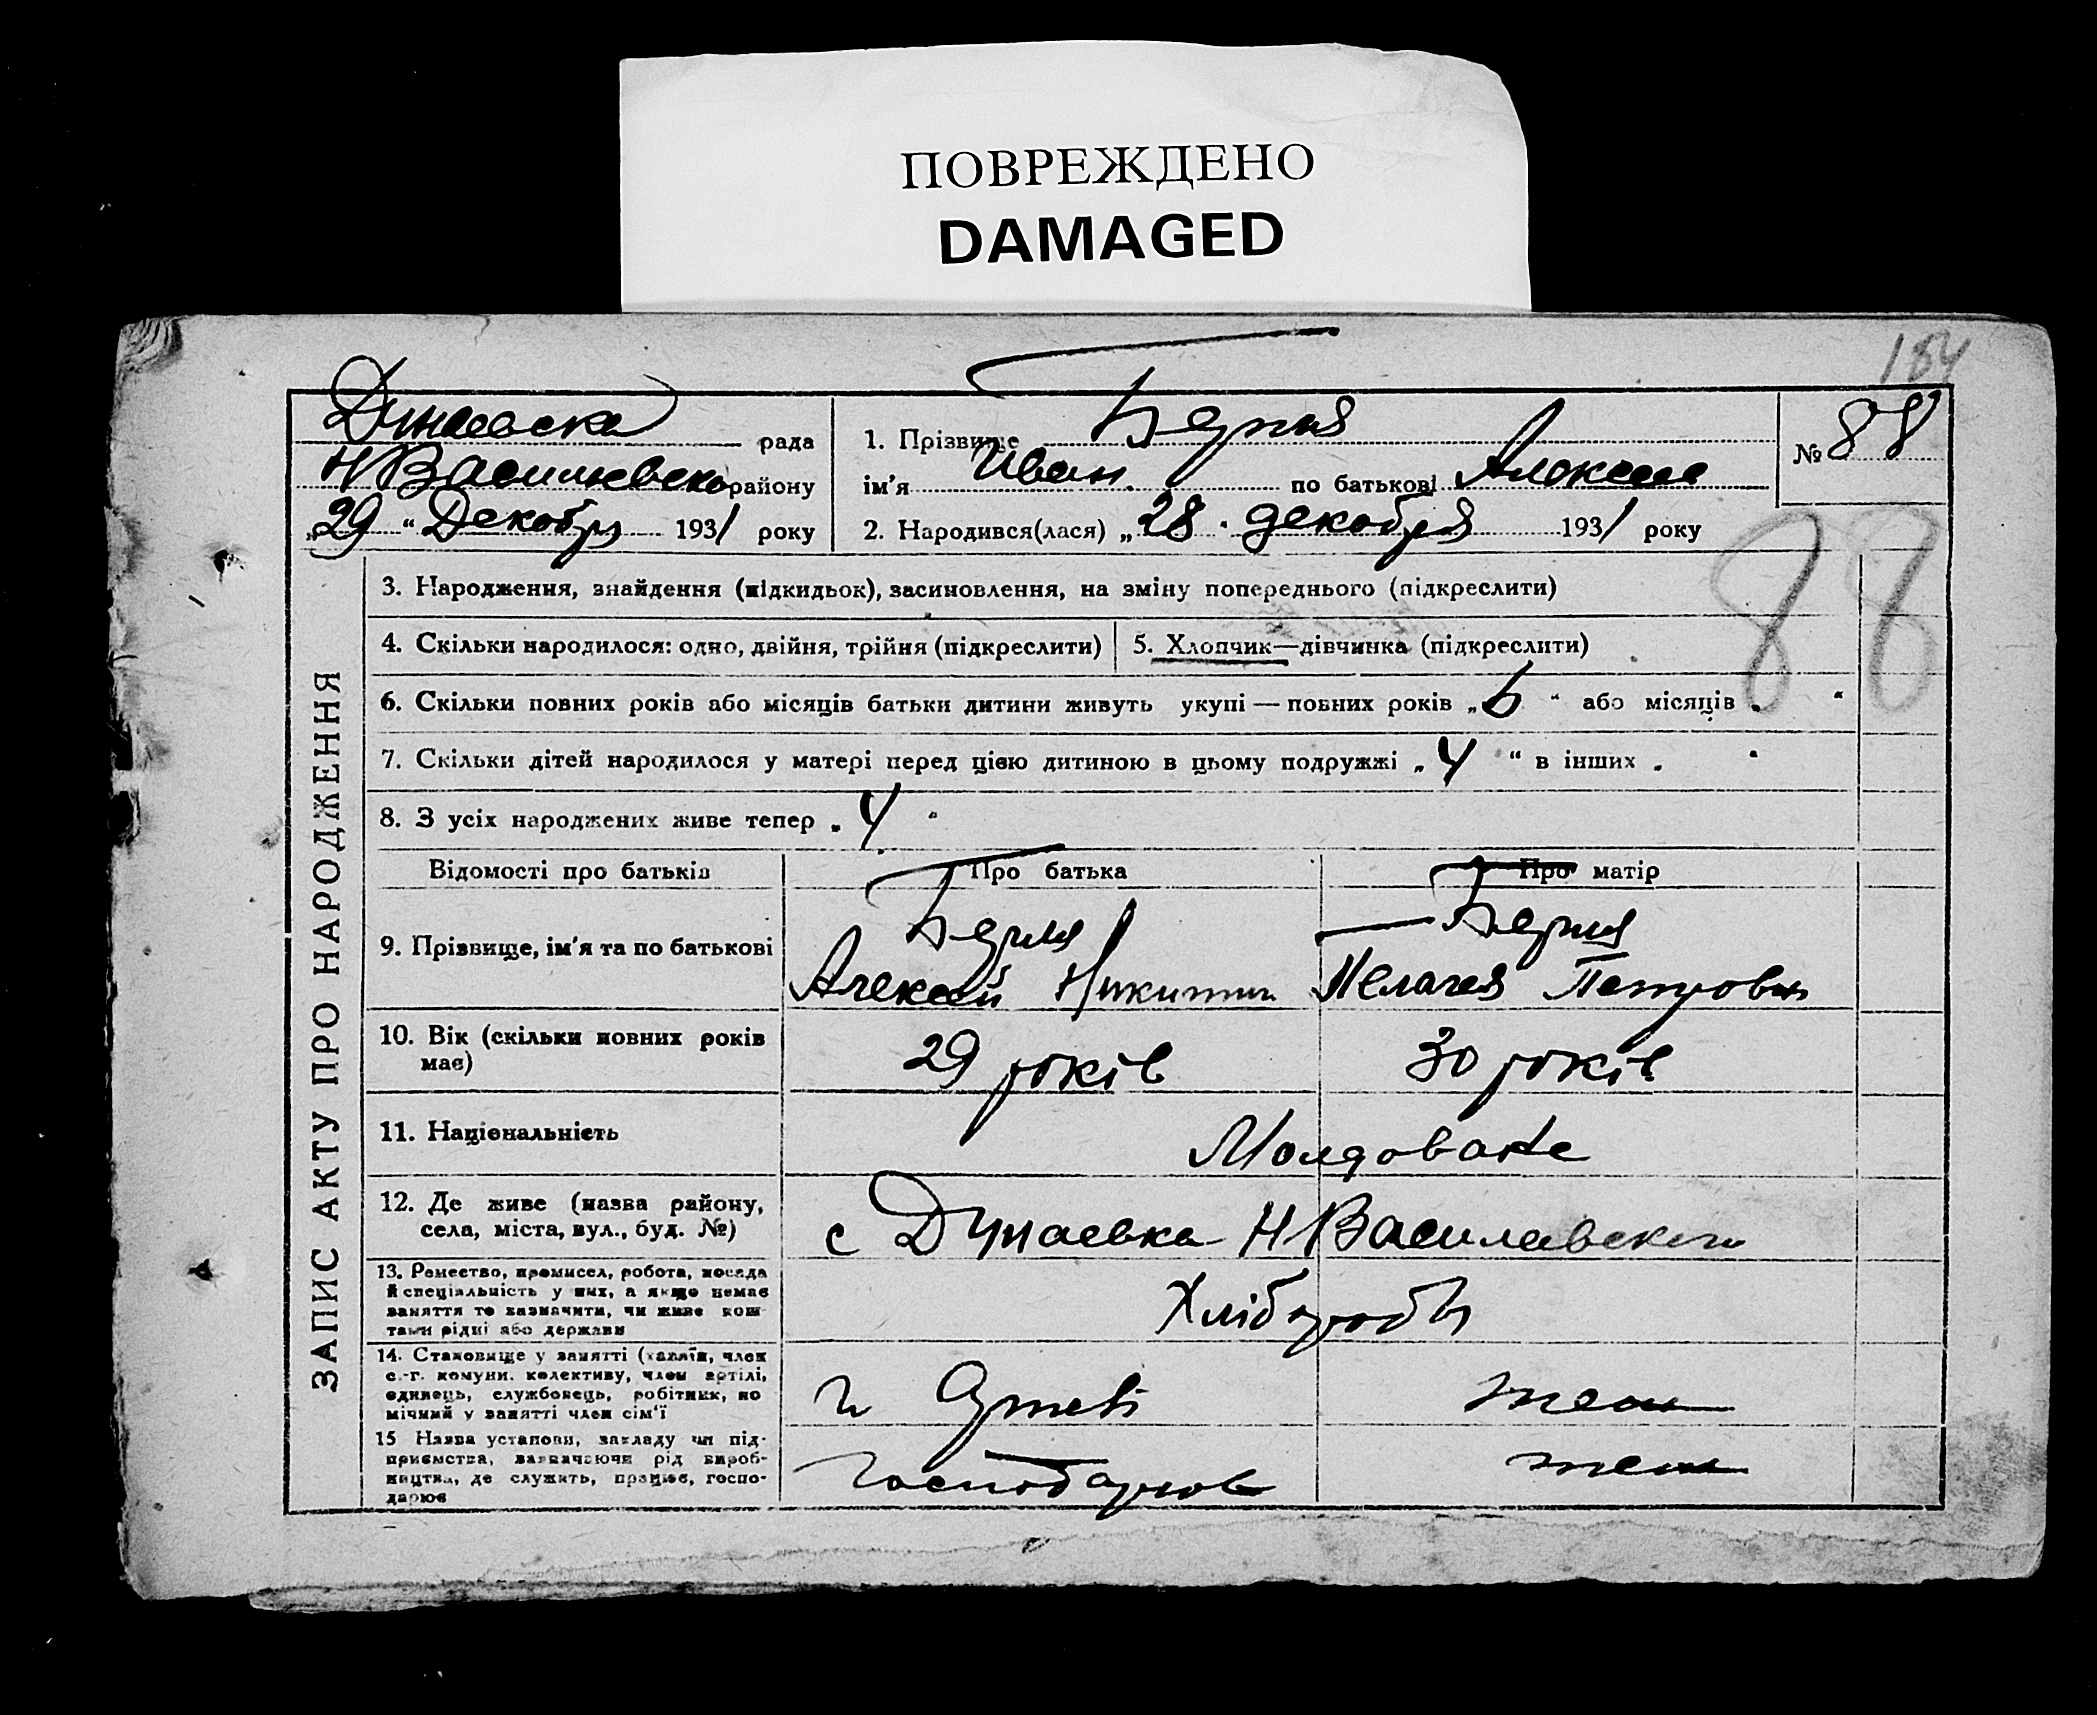 ПОВРЕЖДЕНО
DAMAGED
184
Дунаевска рада
Н Василювсько району
„29 “ Декобря 1931 року
1. Прізвище
ім'я Иван. по батькові Алексее
2. Народився(лася) „28 " декобря 1931 року
№ 88
88
ЗАПИС АКТУ ПРО НАРОДЖЕННЯ
3. Народження, знайдення (підкидьок), засиновлення, на зміну попереднього (підкреслити)
4. Скільки народилося: одно, двійня, трійня (підкреслити)
5. Хлопчик—дівчинка (підкреслити)
6. Скільки повних років або місяців батьки дитини живуть укупі — повних років „ “ або місяців „ “
7. Скільки дітей народилося у матері перед цією дитиною в цьому подружжі „ 4 “ в інших „ “
8. З усіх народжених живе тепер „ 4 “
Відомості про батьків
Про батька
Про матір
9. Прізвище, ім'я та по батькові
Алексей Никитич
Пелагея Петровн
10. Вік (скільки повних років має)
29 років
30 років
11. Національність
Молдоване
12. Де живе (назва району, села, міста, вул., буд. №)
с Дунаевка Н Василевского
13. Ремество, промисел, робота, посада
й спеціяльність у них, а якщо немає
заняття то зазначити, чи живе кош-
тами рідні або держави
Хлібороби
14. Становище у занятті (хазяїн, член
с.-г. комуни, колективу, член артілі,
одинець, службовець, робітник, по
мічний у занятті член сім'ї
15 Назва установи, закладу чи під-
приємства, зазначаючи рід вироб-
ництва, де служить, працює, госпо-
дарює